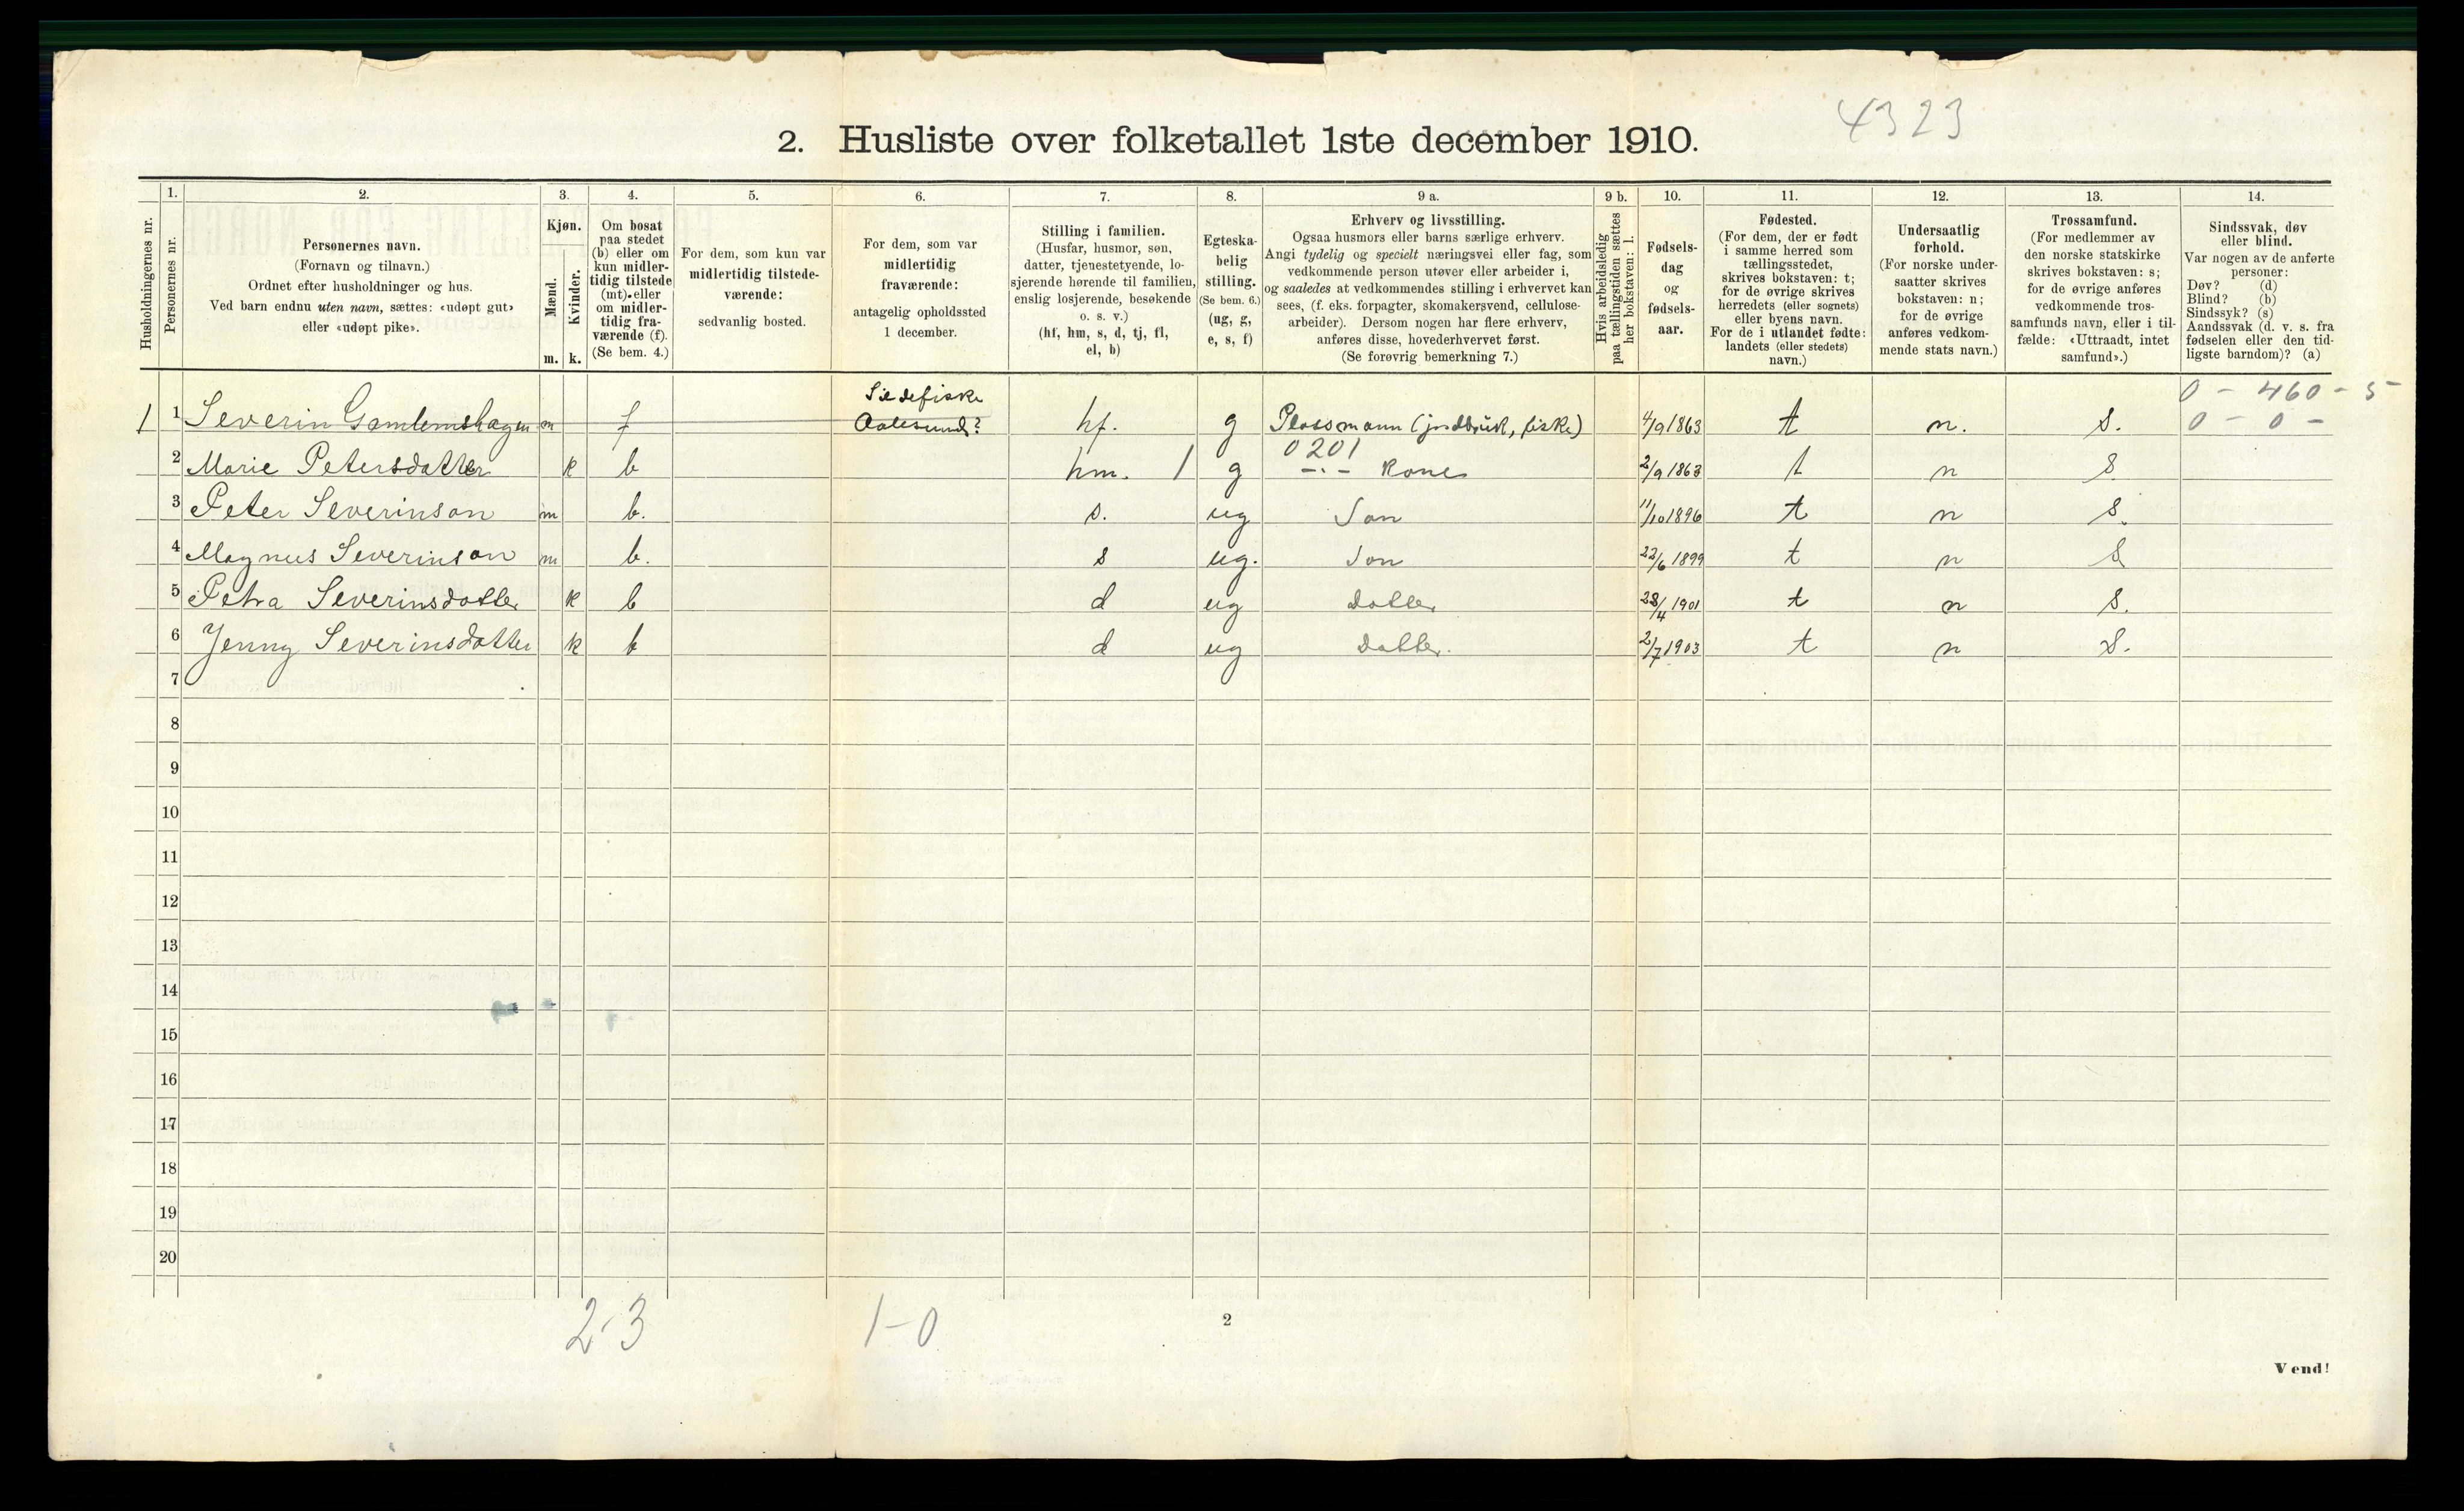 4323
2. Husliste over folketallet 1ste december 1910.
Husholdningernes nr.
1.
Personernes nr.
2.
Personernes navn.
(Fornavn og tilnavn.)
Ordnet efter husholdninger og hus.
Ved barn endnu uten navn, sættes: «udøpt gut»
eller «udøpt pike».
3.
Kjøn.
Mænd.
Kvinder.
m. k.
4.
Om bosat
paa stedet
(b) eller om
kun midler-
tidig tilstede
(mt) eller
om midler-
tidig fra-
værende (f).
(Se bem. 4.)
5.
For dem, som kun var
midlertidig tilstede-
værende:
sedvanlig bosted.
6.
For dem, som var
midlertidig
fraværende:
antagelig opholdssted
1 december.
7.
Stilling i familien.
(Husfar, husmor, søn,
datter, tjenestetyende, lo-
sjerende hørende til familien,
enslig losjerende, besøkende
o. s. v.)
(hf, hm, s, d, tj, fl,
el, b)
8.
Egteska-
belig
stilling.
(Se bem. 6.)
(ug, g,
e, s, f)
9 a.
Erhverv og livsstilling.
Ogsaa husmors eller barns særlige erhverv.
Angi tydelig og specielt næringsvei eller fag, som
vedkommende person utøver eller arbeider i,
og saaledes at vedkommendes stilling i erhvervet kan
sees, (f. eks. forpagter, skomakersvend, cellulose-
arbeider). Dersom nogen har flere erhverv,
anføres disse, hovederhvervet først.
(Se forøvrig bemerkning 7.)
9 b.
Hvis arbeidsledig
paa tællingstiden sættes
her bokstaven: l.
10.
Fødsels-
dag
og
fødsels-
aar.
11.
Fødested.
(For dem, der er født
i samme herred som
tællingsstedet,
skrives bokstaven: t;
for de øvrige skrives
herredets (eller sognets)
eller byens navn.
For de i utlandet fødte:
landets (eller stedets)
navn.)
12.
Undersaatlig
forhold.
(For norske under-
saatter skrives
bokstaven: n;
for de øvrige
anføres vedkom-
mende stats navn.)
13.
Trossamfund.
(For medlemmer av
den norske statskirke
skrives bokstaven: s;
for de øvrige anføres
vedkommende tros-
samfunds navn, eller i til-
fælde: «Uttraadt, intet
samfund».)
14.
Sindssvak, døv
eller blind.
Var nogen av de anførte
personer:
Døv? (d)
Blind? (b)
Sindssyk? (s)
Aandssvak (d. v. s. fra
fødselen eller den tid-
ligste barndom)? (a)
Sildefiske 0 - 460 - 5
1 1 Severin Gamlemshagen m f Aalesund? hf. g Plassmann (jordbruk, fiske) 4/9 1863 t n. s. 0 - 0 -
0201
2 Marie Petersdatter k b hm. 1 g -"- Kone 2/9 1863 t n s
3 Peter Severinson m b. s. ug Søn 11/10 1896 t n s.
4 Magnus Severinson m b. s ug. Søn 22/6 1899 t n s
5 Petra Severinsdatter k b d ug datter 28/4 1901 t n s.
6 Jenny Severinsdatter k b d ug datter. 2/7 1903 t n s.
7
8
9
10
11
12
13
14
15
16
17
18
19
20
2-3 1-0
2
Vend!